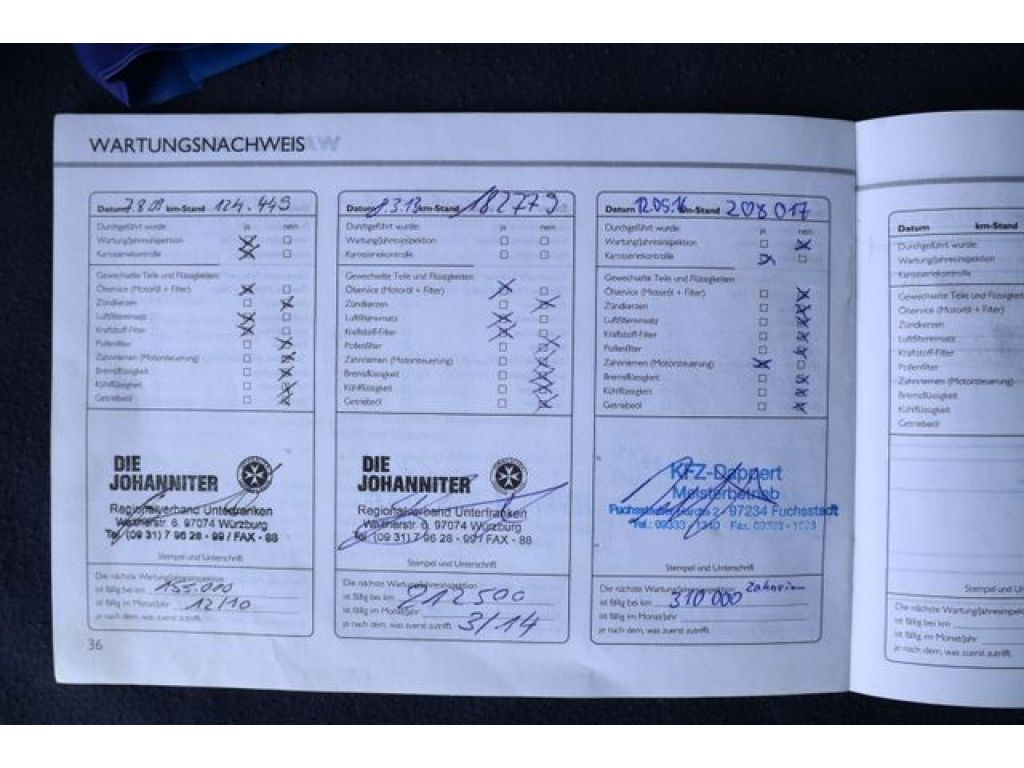 WARTUNGSNACHWEIS
Datum 7.8.09 km-Stand 124.449
Durchgeführt wurde: ja nein
Wartung/Jahresinspektion
Karosseriekontrolle
Gewechselte Teile und Flüssigkeiten:
Ölservice (Motoröl + Filter)
Zündkerzen
Luftfiltereinsatz
Kraftstoff-Filter
Pollenfilter
Zahnriemen (Motorsteuerung)
Bremsflüssigkeit
Kühlflüssigkeit
Getriebeöl
DIE
JOHANNITER
Regionalverband Unterfranken
Waltherstr. 6, 97074 Würzburg
Tel. (09 31) 7 96 28 - 99 / FAX - 88
Stempel und Unterschrift
Die nächste
ist fällig bei km 155.000
ist fällig im Monat/Jahr 12/10
je nach dem, was zuerst zutrifft.
36
Datum 8.3.13 km-Stand 182779
Durchgeführt wurde: ja nein
Wartung/Jahresinspektion
Karosseriekontrolle
Gewechselte Teile und Flüssigkeiten:
Ölservice (Motoröl + Filter)
Zündkerzen
Luftfiltereinsatz
Kraftstoff-Filter
Pollenfilter
Zahnriemen (Motorsteuerung)
Bremsflüssigkeit
Kühlflüssigkeit
Getriebeöl
DIE
JOHANNITER
Regionalverband Unterfranken
Waltherstr. 6, 97074 Würzburg
Tel. (09 31) 7 96 28 - 99 / FAX - 88
Stempel und Unterschrift
Die nächste Wartung/Jahresinspektion
ist fällig bei km 212500
ist fällig im Monat/Jahr
je nach dem, was zuerst zutrifft. 3/14
Datum 12.05.16 km-Stand 208017
Durchgeführt wurde: ja nein
Wartung/Jahresinspektion
Karosseriekontrolle
Gewechselte Teile und Flüssigkeiten:
Ölservice (Motoröl + Filter)
Zündkerzen
Luftfiltereinsatz
Kraftstoff-Filter
Pollenfilter
Zahnriemen (Motorsteuerung)
Bremsflüssigkeit
Kühlflüssigkeit
Getriebeöl
KFZ-Dappert
Meisterbetrieb
2 - 97234 Fuchsstadt
Tel.: 09333 Fax:
Stempel und Unterschrift
Die nächste Wartung/Jahresinspektion
ist fällig bei km 310000
ist fällig im Monat/Jahr
je nach dem, was zuerst zutrifft.
Datum km-Stand
Durchgeführt wurde:
Wartung/Jahresinspektion
Karosseriekontrolle
Gewechselte Teile und Flüssigkeiten
Ölservice (Motoröl + Filter)
Zündkerzen
Luftfiltereinsatz
Kraftstoff-Filter
Pollenfilter
Zahnriemen (Motorsteuerung)
Bremsflüssigkeit
Kühlflüssigkeit
Getriebeöl
Stempel und Un
Die nächste Wartung/Jahresinspek
ist fällig bei km
ist fällig im Monat/Jahr
je nach dem, was zuerst zutrifft.